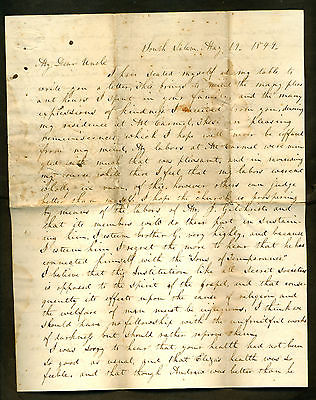 South Salem, Aug 19. 1844.
My Dear Uncle
I have seated myself at my table to
write you a letter, this brings to mind the many pleas
ant hours I spent in your family and the many
expressions of kindness I received from you, during
my residence at Mt Carmel, These are pleasing
reminiscences, which I hope will never be effaced
from my mind, My labors at Mt Carmel were min
gled with much that was pleasant, and in reviewing
my course while there I feel that my labors were not
wholly in vain, of this however others can judge
better than myself, I hope the church is prospering
by means of the labors of Mr J. Gilchrist and
that its members will do their part in sustain
ing him, I esteem brother G. very highly, and because
I esteem him I regret the more to hear that he has
connected himself with the "Sons of Temperance"
I believe that this Institution like all Secret Societies
is opposed to the Spirit of the gospel, and that conse
quently its effects upon the cause of religion and
the welfare of man must be injurious, I think we
should have no fellowship with the unfruitful works
of darkness but should rather reprove them,
I was sorry to hear that your health had not been
so good as usual, and that Eliza's health was so
feeble, and that though Andrew was better than he